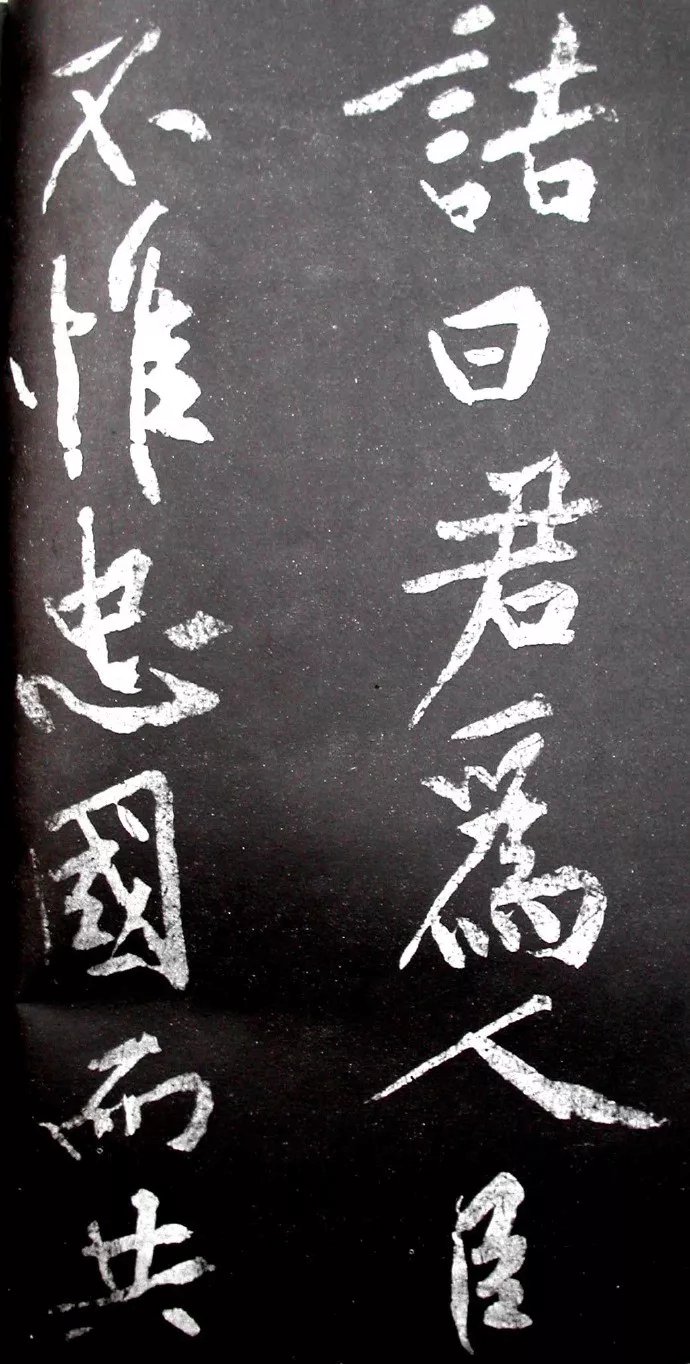 詰曰君爲人臣
不惟忠國而共